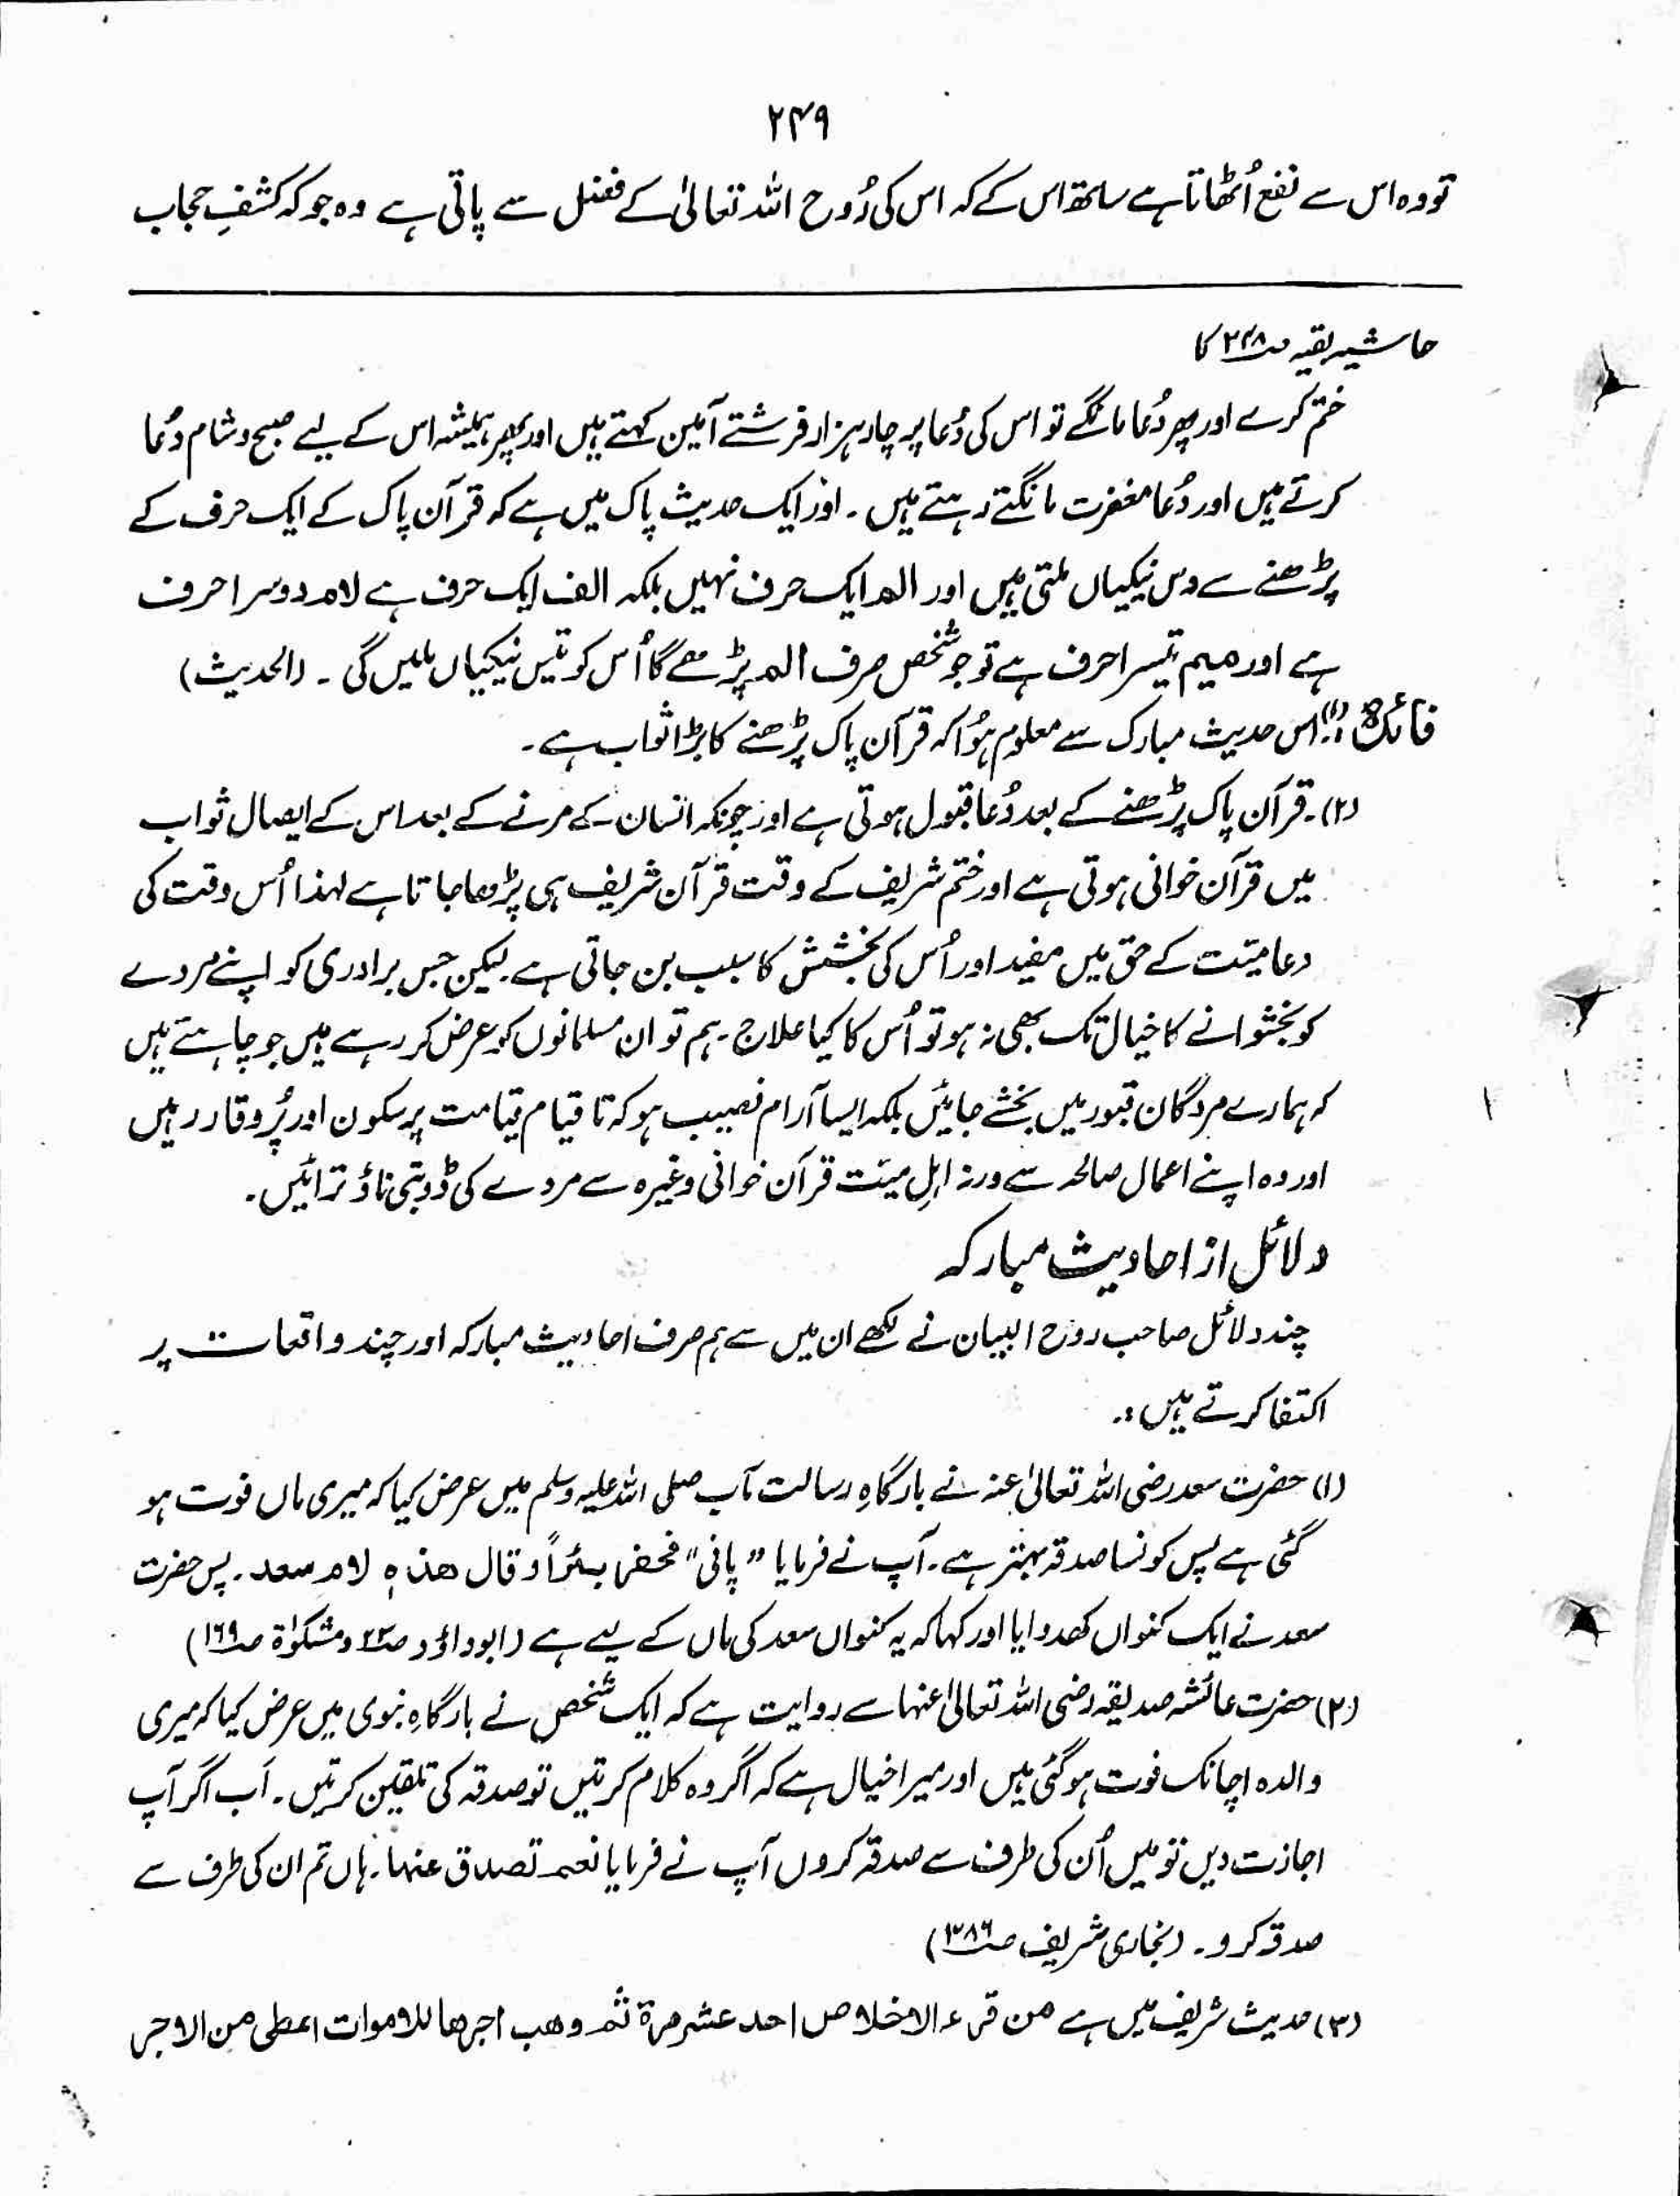 ۲۴۹
تو وہ اس سے نفع اُٹھاتا ہے ساتھ اس کے کہ اس کی رُوح اللہ تعالیٰ کے فضل سے پاتی ہے وہ جو کہ کشفِ حجاب
حاشیہ بقیہ صـ۲۴۸ کا
ختم کرے اور پھر دُعا مانگے تو اس کی دُعا پر چار ہزار فرشتے آمین کہتے ہیں اور پھر ہمیشہ اس کے لیے صبح و شام دُعا
کرتے ہیں اور دُعا مغفرت مانگتے رہتے ہیں۔ اور ایک حدیث پاک میں ہے کہ قرآن پاک کے ایک حرف کے
پڑھنے سے دس نیکیاں ملتی ہیں اور الم ایک حرف نہیں بلکہ الف ایک حرف ہے لام دوسرا حرف
ہے اور میم تیسرا حرف ہے تو جو شخص صرف الم پڑھے گا اُس کو تیس نیکیاں ملیں گی۔ (الحدیث)
فائدہ : (۱) اس حدیث مبارک سے معلوم ہُوا کہ قرآن پاک پڑھنے کا بڑا ثواب ہے۔
(۲)۔ قرآن پاک پڑھنے کے بعد دُعا قبول ہوتی ہے اور چونکہ انسان کے مرنے کے بعد اس کے ایصال ثواب
میں قرآن خوانی ہوتی ہے اور ختم شریف کے وقت قرآن شریف ہی پڑھا جاتا ہے لہذا اُس وقت کی
دعا میّت کے حق میں مفید اور اُس کی بخشش کا سبب بن جاتی ہے لیکن جس برادری کو اپنے مردے
کو بخشوانے کا خیال تک بھی نہ ہو تو اُس کا کیا علاج۔ ہم تو ان مسلمانوں کو عرض کر رہے ہیں جو چاہتے ہیں
کہ ہمارے مردگان قبور میں بخشے جائیں بلکہ ایسا آرام نصیب ہو کہ تا قیام قیامت پرسکون اور پُر وقار رہیں
اور وہ اپنے اعمال صالحہ سے ورنہ اہلِ میّت قرآن خوانی وغیرہ سے مردے کی ڈوبتی ناؤ ترائیں۔
دلائل از احادیث مبارکہ
چند دلائل صاحب روح البیان نے لکھے ان میں سے ہم صرف احادیث مبارکہ اور چند واقعات پر
اکتفا کرتے ہیں :۔
(۱) حضرت سعد رضی اللہ تعالیٰ عنہ نے بارگاہِ رسالت مآب صلی اللہ علیہ وسلم میں عرض کیا کہ میری ماں فوت ہو
گئی ہے پس کونسا صدقہ بہتر ہے۔ آپ نے فرمایا ”پانی“ فحفر بئراً وقال هذهٖ لام سعد۔ پس حضرت
سعد نے ایک کنواں کھدوایا اور کہا کہ یہ کنواں سعد کی ماں کے لیے ہے (ابوداؤد و مشکوٰۃ صـ۱۶۹)
(۲) حضرت عائشہ صدیقہ رضی اللہ تعالیٰ عنہا سے روایت ہے کہ ایک شخص نے بارگاہِ نبوی میں عرض کیا کہ میری
والدہ اچانک فوت ہو گئی ہیں اور میرا خیال ہے کہ اگر وہ کلام کرتیں تو صدقہ کی تلقین کرتیں۔ اَب اگر آپ
اجازت دیں تو میں اُن کی طرف سے صدقہ کروں آپ نے فرمایا نعم تصدق عنها۔ ہاں تم ان کی طرف سے
صدقہ کرو۔ (بخاری شریف صـ۳۸۶)
(۳) حدیث شریف میں ہے من قرء الاخلاص احد عشر مرة ثم وهب اجرها للاموات اعطی من الاجر